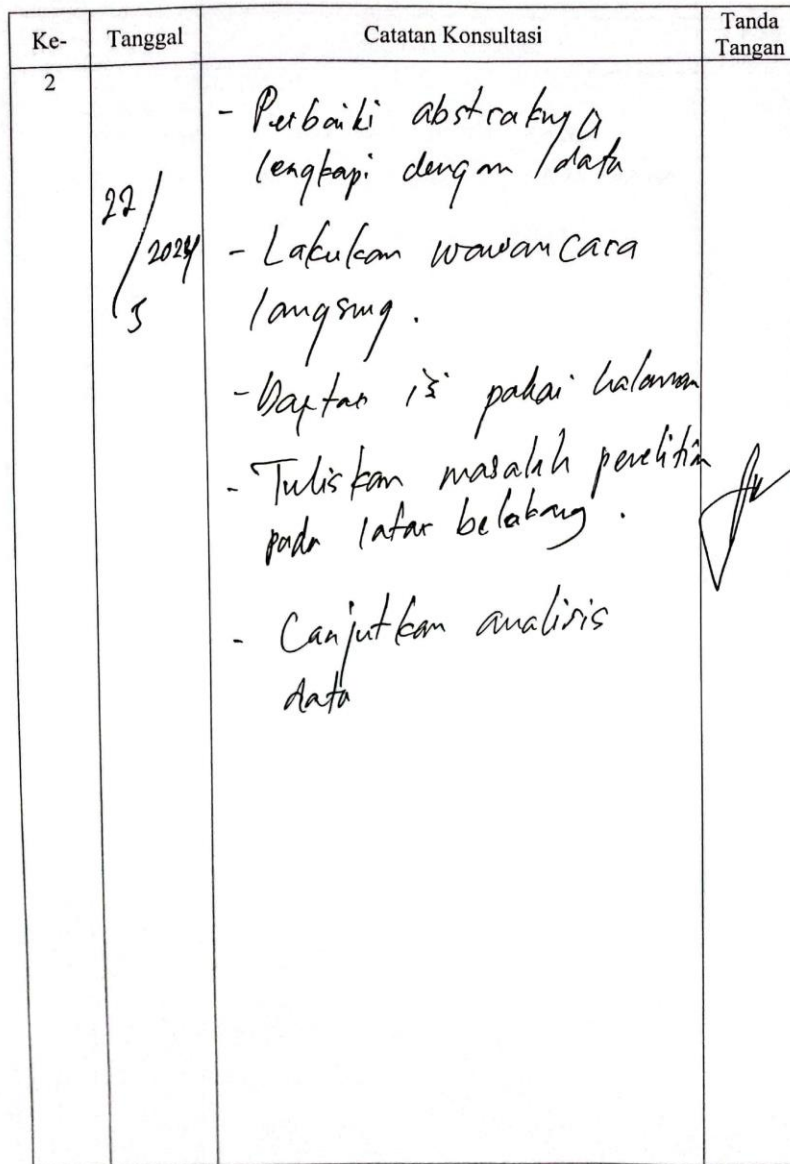 Ke-
Tanggal
Catatan Konsultasi
Tanda
Tangan
2
22/5 2024
- Perbaiki abstraknya
lengkapi dengan data
- Lakukan wawancara
langsung.
- Daftar isi pakai halaman
- Tuliskan masalah penelitian
pada latar belakang.
- Lanjutkan analisis
data